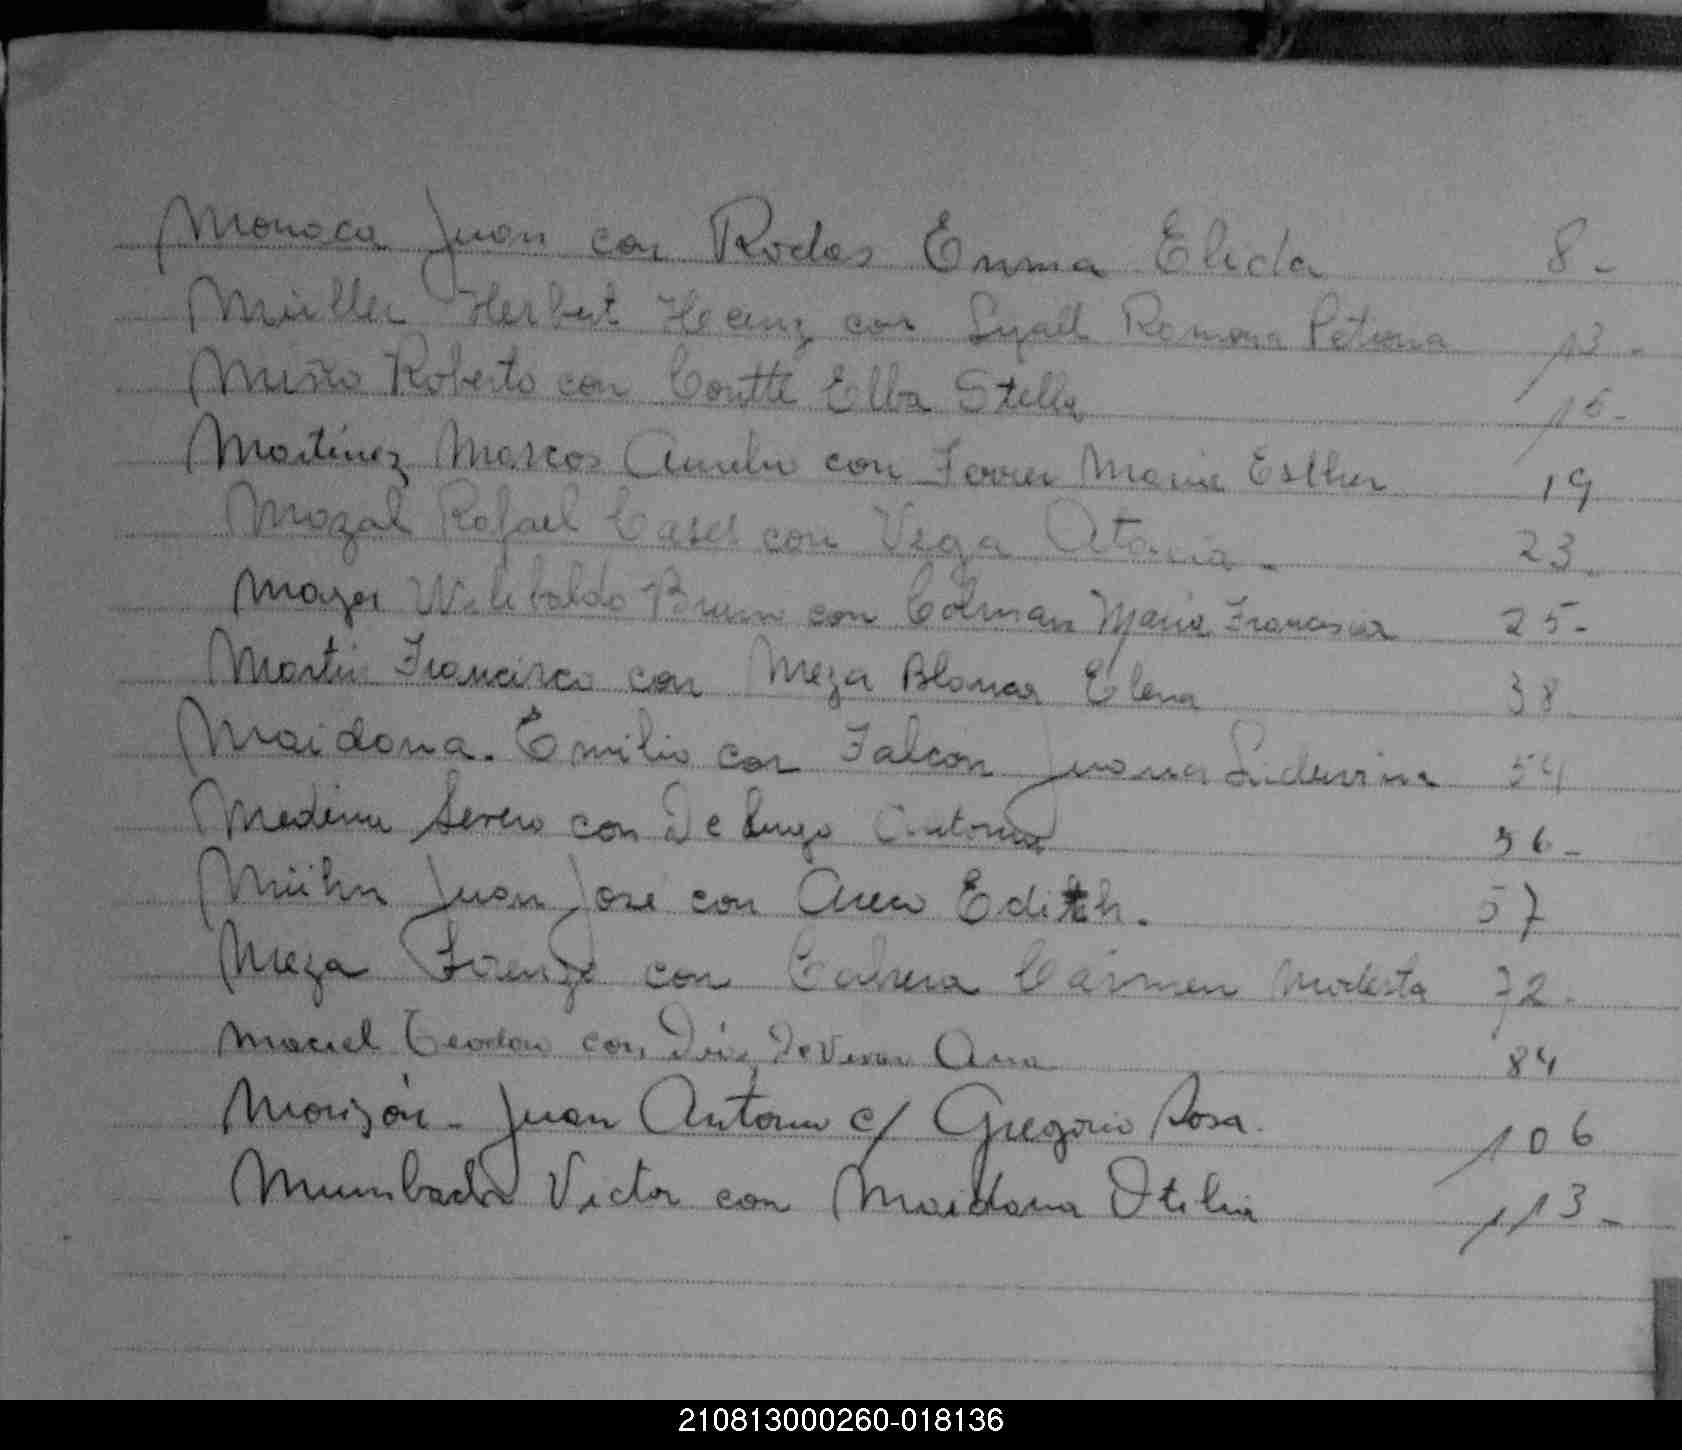 Monaca Juan con Rodas Emma Elida 8-
Müller Herbert Heinz con Syall Ramona Petrona 13-
Miño Roberto con Coutte Elba Stella 15-
Martínez Marcos Aurelio con Ferrer Maria Esther 19
Mazal Rafael Casel con Vega Atacia - 23-
Mazer Wilibaldo Bruno con Colman Maria Francisca 25-
Martin Francisco con Meza Blanca Elena 38
Maidana. Emilio con Falcón Juana Liduvina 54
Medina Severo con De Lugo Antonia 56-
Mühn Juan José con Edith. 57
Meza con Cabrera Carmen Modesta 72-
Maciel Teodoro con Ana 84
Monzón - Juan Antonio c/ Gregorio Rosa. 106
Victor con Maidana Otilia 113-
210813000260-018136